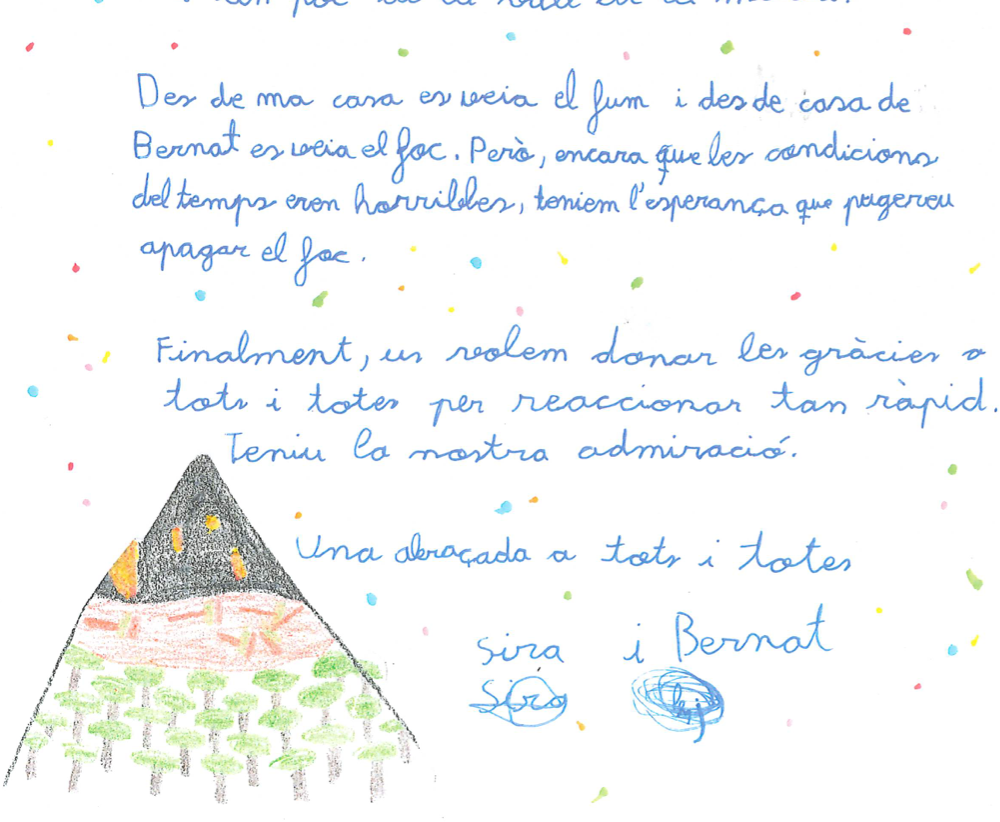 Des de ma casa es veia el fum i des de casa de
Bernat es veia el foc. Però, encara que les condicions
del temps eren horribles, teniem l'esperança que pugereu
apagar el foc.
Finalment, us volem donar les gràcies a
tots i totes per reaccionar tan ràpid.
Teniu la nostra admiració.
Una abraçada a tots i totes
Sira i Bernat
Sira